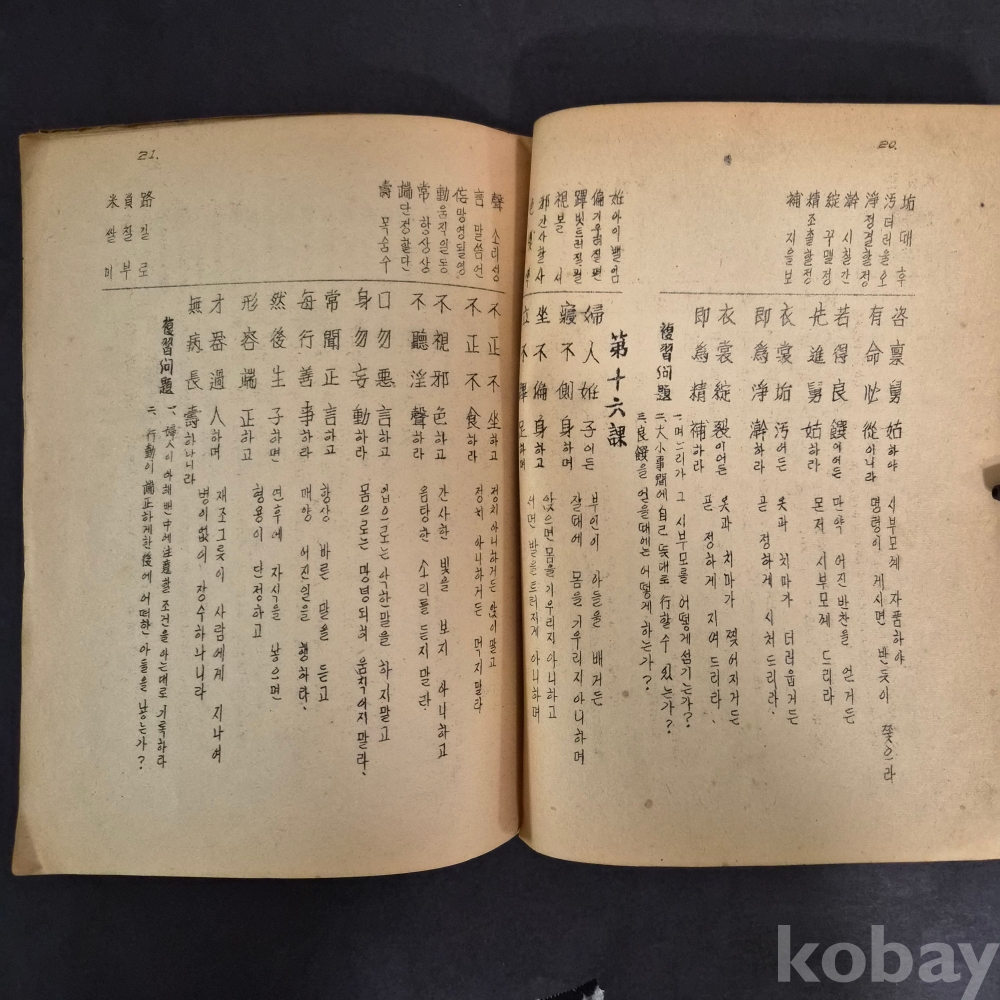 20.
垢 대 후
汚 더러울 오
淨 정결할 정
澣 시칠 간
綻 꾸맬 정
精 조촐할 정
補 지을 보
咨禀舅姑하야 시부모께 자품하야
有命必從이니라 명령이 게시면 반듯이 쫓으라
若得良饌이어든 만약 어진 반찬을 얻거든
先進舅姑하라 몬저 시부모께 드리라
衣裳垢汚어든 옷과 치마가 더러웁거든
即爲淨澣하라 곧 정하게 시처드리라.
衣裳綻裂이어든 옷과 치마가 찢어지거든
即爲精補하라 곧 정하게 지여드리라.
複習问題
一. 며느리가 그 시부모를 어떻게 섬기는가?
二. 大小事間에 自己 뜻대로 行할 수 있는가?
三. 良饌을 얻을때에는 어떻게 하는가?
第十六課
姙 아이밸 임
偏 기우러질 편
蹕 빗드러질 필
視 볼 시
邪 간사할 사
婦人姙子어든 부인이 아들을 배거든
寢不側身하며 잘때에 몸을 기우리지 아니하며
坐不偏身하고 앉으면 몸을 기우리지 아니하고
立不蹕足하며 서면 발을 드러지게 아니하며
21.
聲 소리 성
言 말씀 언
妄 망영될 영
動 움직일 동
常 항상 상
端 단정할 단
壽 목숨 수
路 길 로
負 질 부
米 쌀 미
不正不坐하고 정치 아니하거든 앉이말고
不正不食하라 정치 아니하거든 먹지말라
不視邪色하고 간사한 빛을 보지 아니하고
不聽淫聲하라 음탕한 소리를 듣지말라.
口勿惡言하고 입으로는 악한말을 하지말고
身勿妄動하라 몸으로는 망녕되히 움직이지말라.
常聞正言하고 항상 바른 말을 듣고
每行善事하라 매양 어진일을 행하라.
然後生子하면 연후에 자식을 낳으면
形容端正하고 형용이 단정하고
才器過人하며 재조그릇이 사람에게 지나며
無病長壽하나니라 병이없이 장수하나니라
複習问題
一. 婦人이 아해밴 中에 注意할 조건을 아는대로 기록하라
二. 行動이 端正하게한 後에 어떠한 아들을 낳는가?
kobay